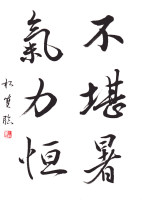 不堪暑
氣力恒